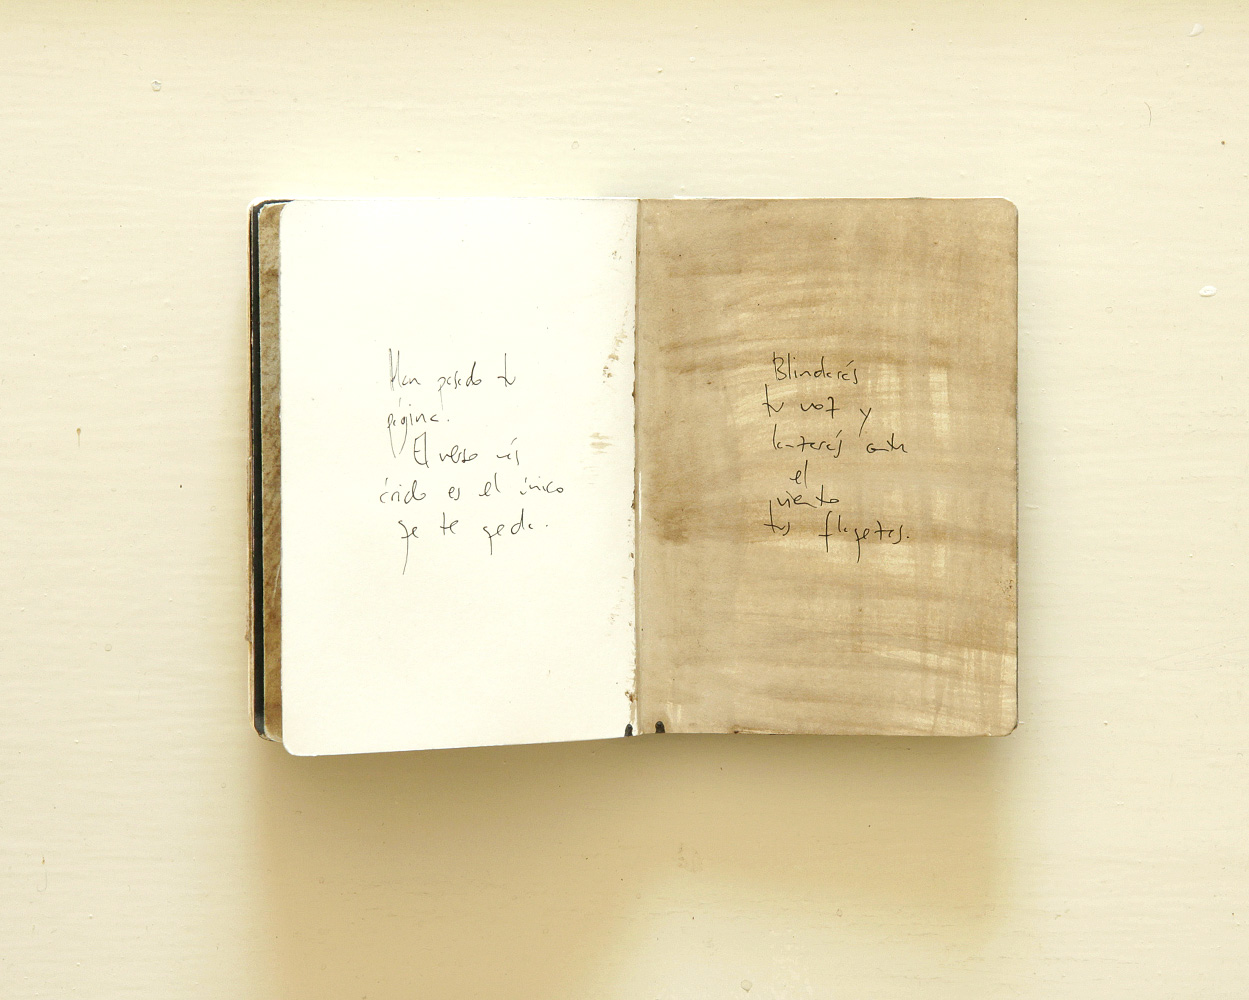 Han pasado tu
página.
El verso más
árido es el único
qe te qeda.
Blindarás
tu voz y
lanzarás ante
el
viento
tus flaqezas.